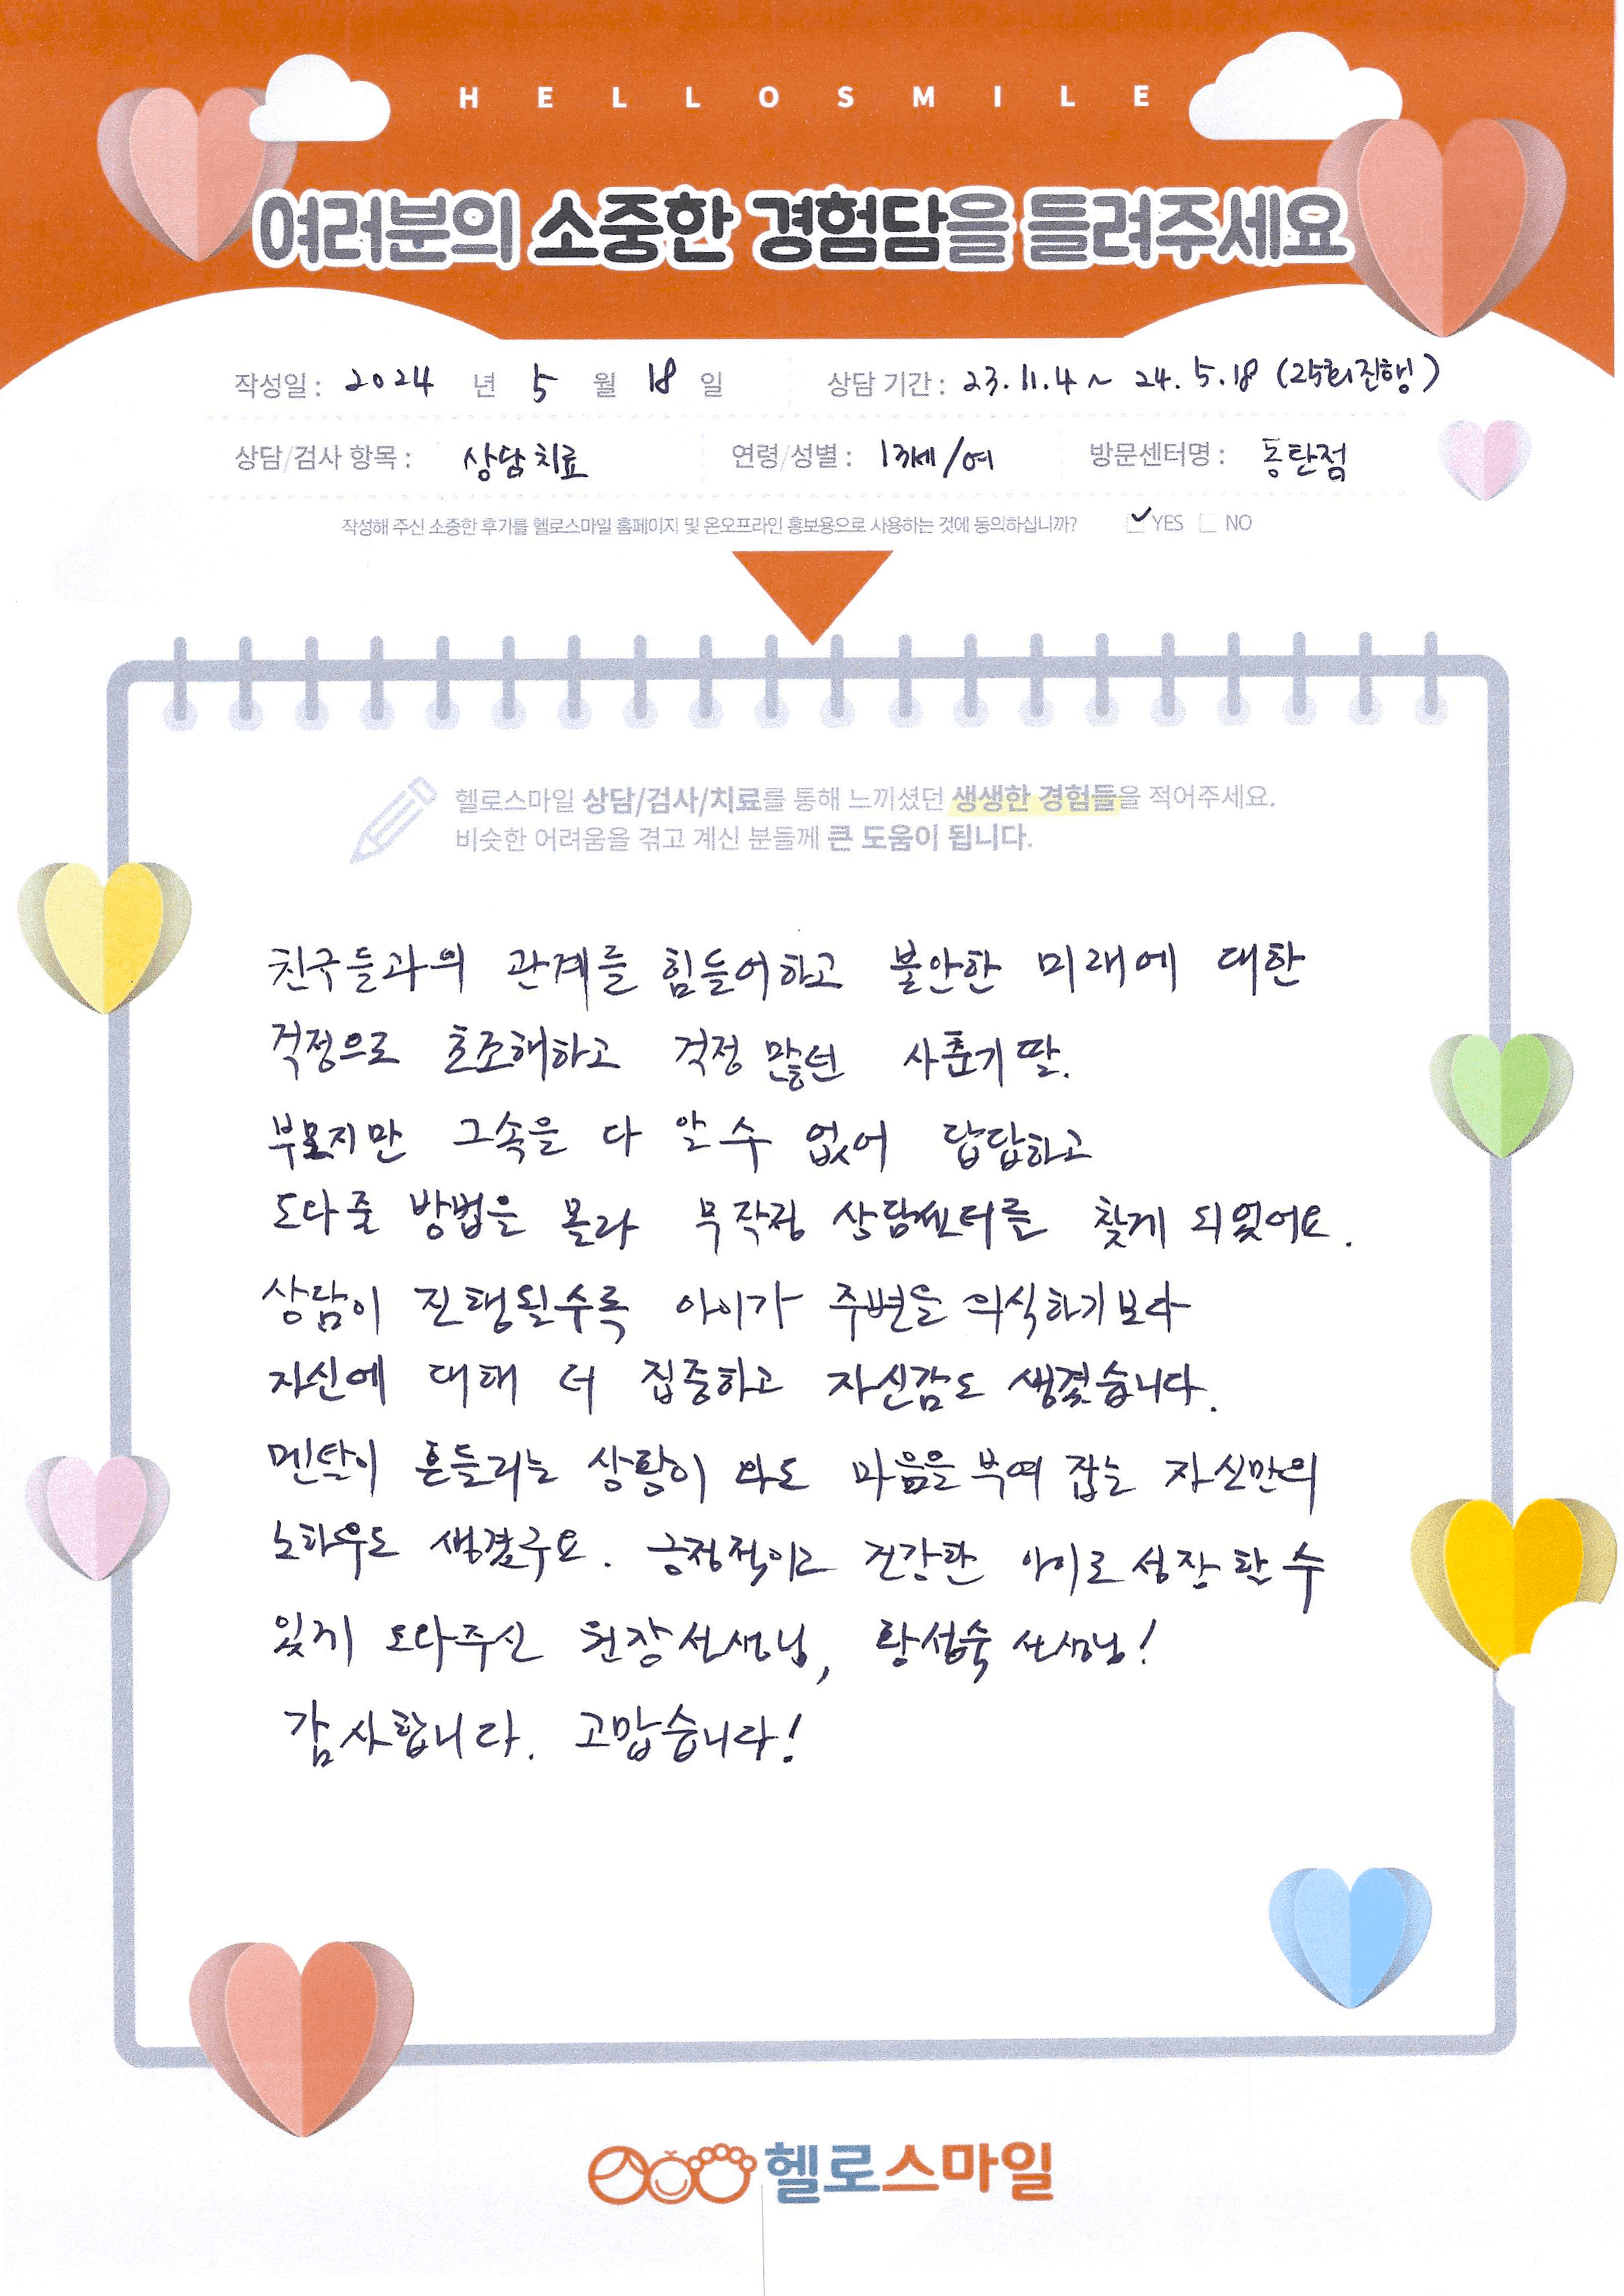 HELLOSMILE
여러분의 소중한 경험담을 들려주세요
작성일 : 2024 년 5 월 18 일 상담 기간 : 23. 11. 4 ~ 24. 5. 18 (25회 진행)
상담/검사 항목 : 상담치료 연령/성별 : 13세/여 방문센터명 : 동탄점
작성해 주신 소중한 후기를 헬로스마일 홈페이지 및 온오프라인 홍보용으로 사용하는 것에 동의하십니까? YES NO
헬로스마일 상담/검사/치료를 통해 느끼셨던 생생한 경험들을 적어주세요.
비슷한 어려움을 겪고 계신 분들께 큰 도움이 됩니다.
친구들과의 관계를 힘들어하고 불안한 미래에 대한
걱정으로 초조해하고 걱정 많던 사춘기 딸.
부모지만 그속을 다 알 수 없어 답답하고
도와줄 방법을 몰라 무작정 상담센터를 찾게 되었어요.
상담이 진행될수록 아이가 주변을 의식하기보다
자신에 대해 더 집중하고 자신감도 생겼습니다.
멘탈이 흔들리는 상황이 와도 마음을 부여 잡는 자신만의
노하우도 생겼구요. 긍정적이고 건강한 아이로 성장 할 수
있게 도와주신 원장선생님, 황성숙 선생님!
감사합니다. 고맙습니다!
헬로스마일